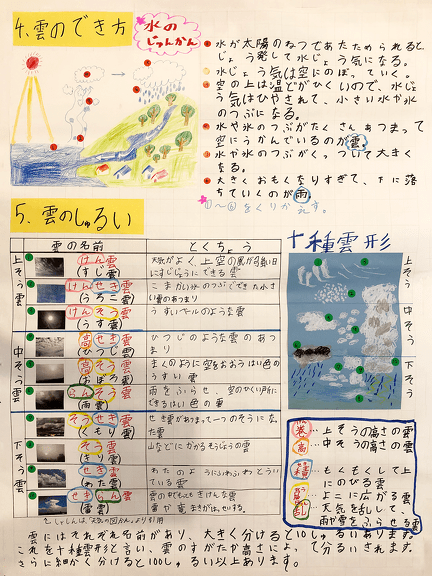 4.雲のでき方
水の
じゅんかん
水が太陽のねつであたためられると
じょう発して水じょう気になる。
水じょう気は空にのぼっていく。
空の上は温どがひくいので、水じょ
う気はひやされて、小さい水や氷
のつぶになる。
水や氷のつぶがたくさんあつまって
空にうかんでいるのが雲
水や氷のつぶがくっついて大きく
なる。
大きくおもくなりすぎて、下に落
ちていくのが雨
①〜⑥をくりかえす。
5.雲のしゅるい
十種雲形
雲の名前
とくちょう
上そう雲
けん雲
(すじ雲)
けんせき雲
(うろこ雲)
こまかい氷のつぶでできた小さ
い雲のあつまり
けんそう雲
(うす雲)
うすいベールのような雲
中そう雲
高せき雲
(ひつじ雲)
ひつじのような雲のあつ
まり
高そう雲
(おぼろ雲)
まくのように空をおおうはい色の
うすい雲
らんそう雲
(雨雲)
雨をふらせ 空のひくい所に
できるはい色の雲
下そう雲
そうせき雲
(くもり雲)
せき雲があつまって一つのそうになっ
た雲
そう雲
(きり雲)
山などにかかるきりじょうの雲
せき雲
(わた雲)
わたのようにふわふわとうい
ている雲
せきらん雲
(雷雲)
雲の中でもっともきけんな雲
上そう
中そう
下そう
巻…上そうの高さの雲
高…中そうの高さの雲
積…もくもくして上
にのびる雲
層…よこに広がる雲
乱…天気を乱して、
雨や雪をふらせる雲
雲にはそれぞれ名前があり、大きく分けると10しゅるいあります。
これを十種雲形と言い、雲のすがたや高さによって分るいされます。
さらに細かく分けると100しゅるい以上あります。